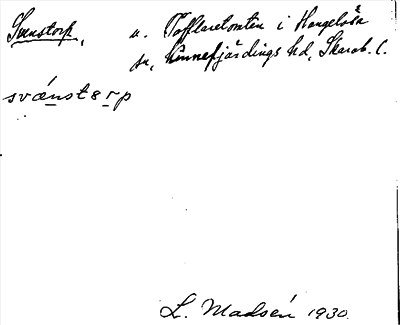 Svenstorp, u. Tofflaretomten i Hangelösa
sn, Kinnefjärdings hd, Skarab. l.
svænstɵrp
L. Madsén 1930.